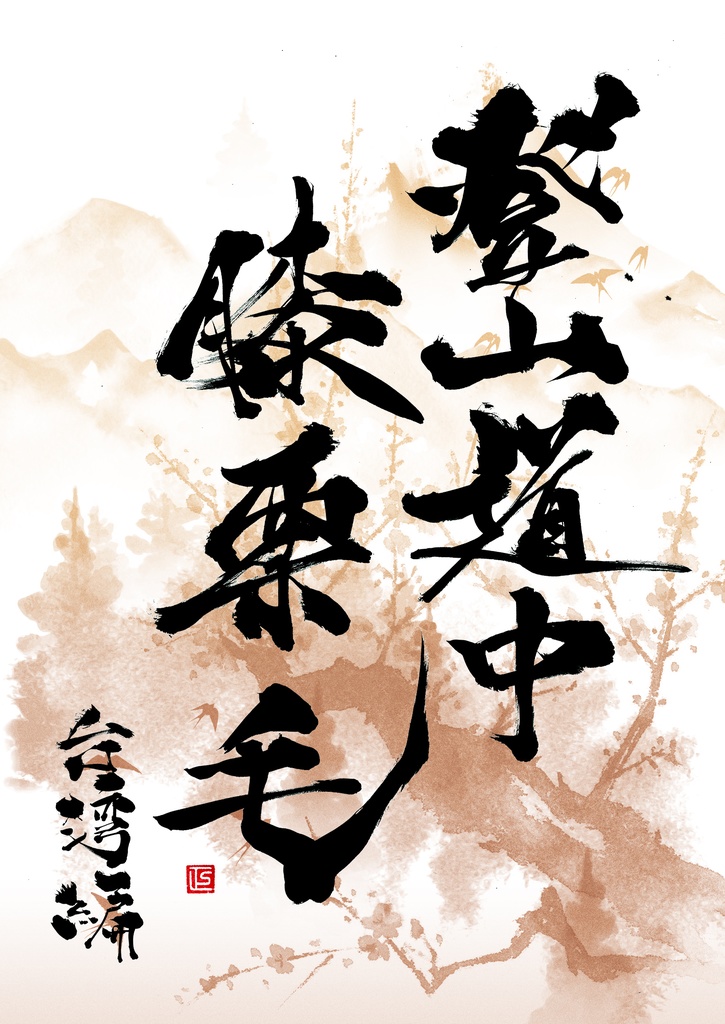 登山道中
膝栗毛
台湾編